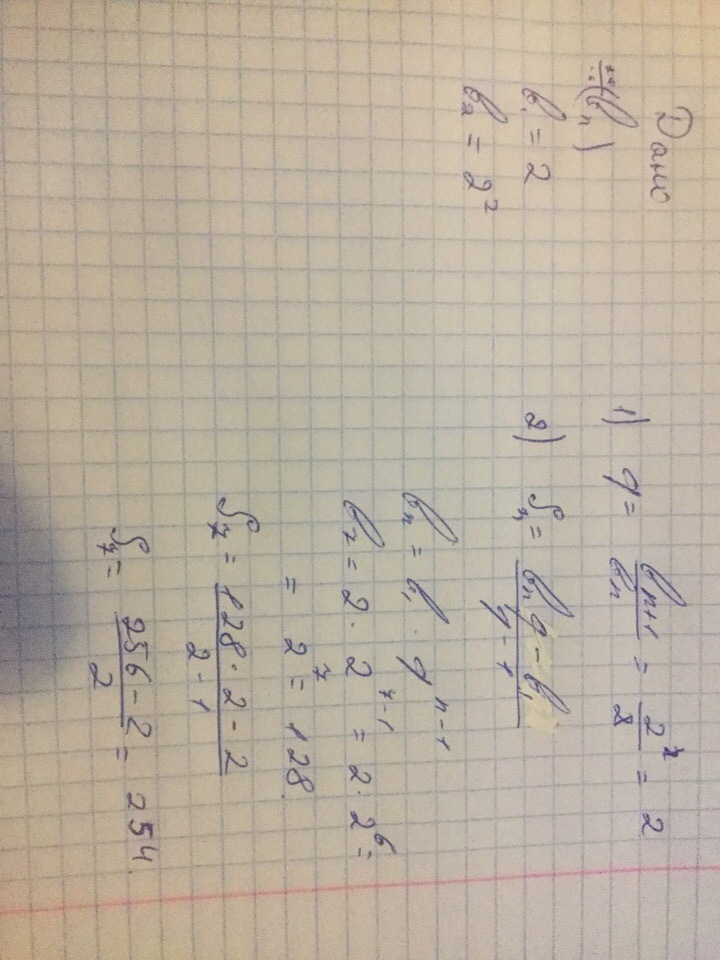 Дано
(bₙ)
b₁ = 2
b₂ = 2²
1) q = bₙ₊₁ / bₙ = 2² / 2 = 2
2) Sₙ = (bₙ q - b₁) / (q - 1)
bₙ = b₁ · qⁿ⁻¹
b₇ = 2 · 2⁷⁻¹ = 2 · 2⁶ =
= 2⁷ = 128
S₇ = (128 · 2 - 2) / (2 - 1)
S₇ = (256 - 2) / 2 = 254.